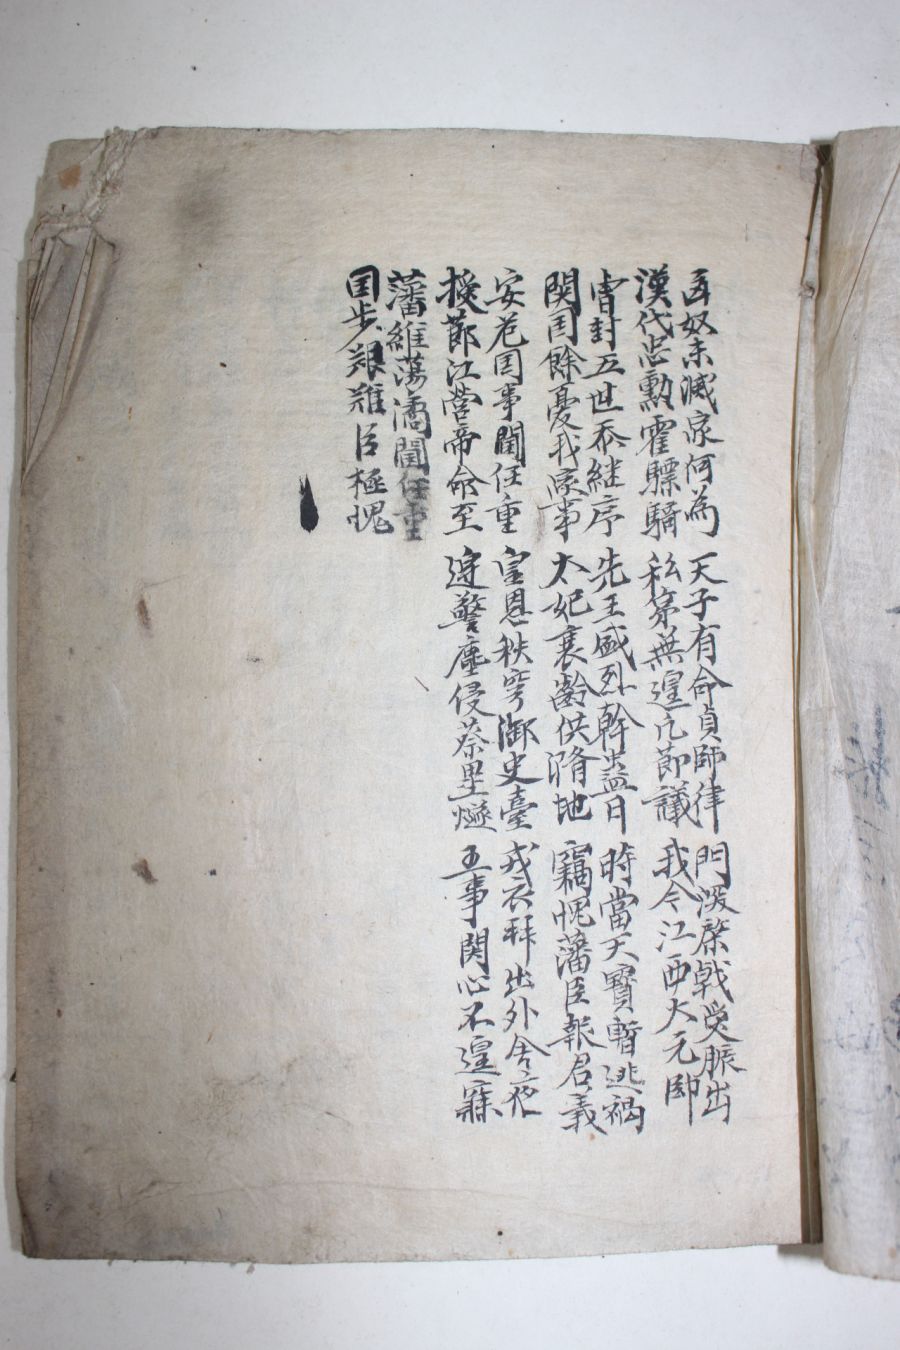 匈奴未滅家何為 天子有命貞師律 門深棨戟受脤出
漢代忠勳霍驃騎 私第無遑凡節議 我今江西大元帥
曺封五世忝継序 先王盛烈幹蠱日 時當天寶暫逃禍
関国餘憂我家事 太妃衰齡供滫地 竊愧藩臣報君義
安危国事閫任重 皇恩秩穹御史臺 戎衣拜出外舍夜
授節江営帝命至 邊警塵侵蔡里燧 王事関心不遑寐
藩維蕩潏閫任重
国步艱難臣極愧